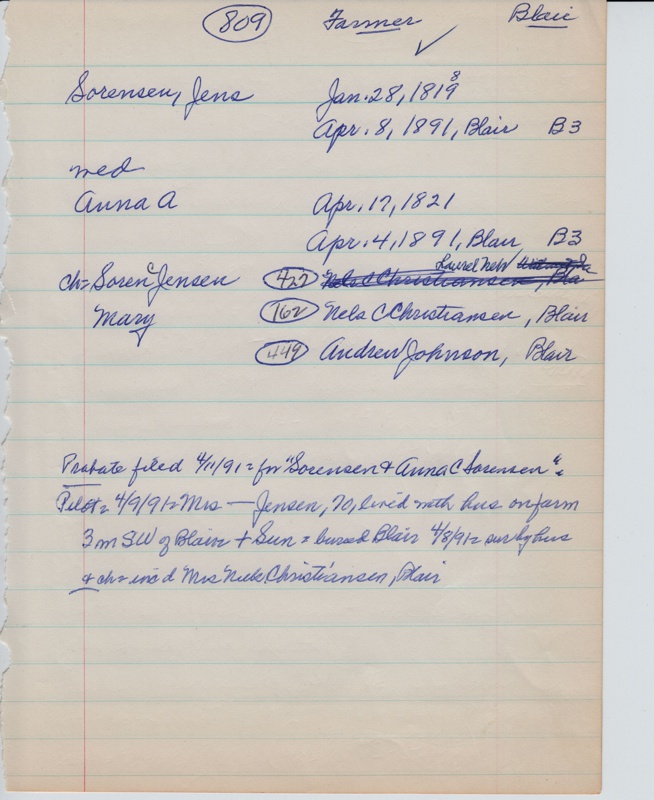 809 Farmer Blair
✓
Sorensen, Jens Jan. 28, 1819 8
Apr. 8, 1891, Blair B3
med
Anna A Apr. 17, 1821
Apr. 4, 1891, Blair B3
Laurel Neb
ch= Soren C Jensen 422 Nels C Christiansen, Bla
Mary 162 Nels C Christiansen, Blair
449 Andrew Johnson, Blair
Probate filed 4/11/91= for "Sorensen & Anna C Sorensen"=
Pilot= 4/9/91= Mrs — Jensen, 70, lived with hus on farm
3 m SW of Blair= + Sun= buried Blair 4/8/91= sur by hus
& ch= inc'd Mrs Niels Christiansen, Blair